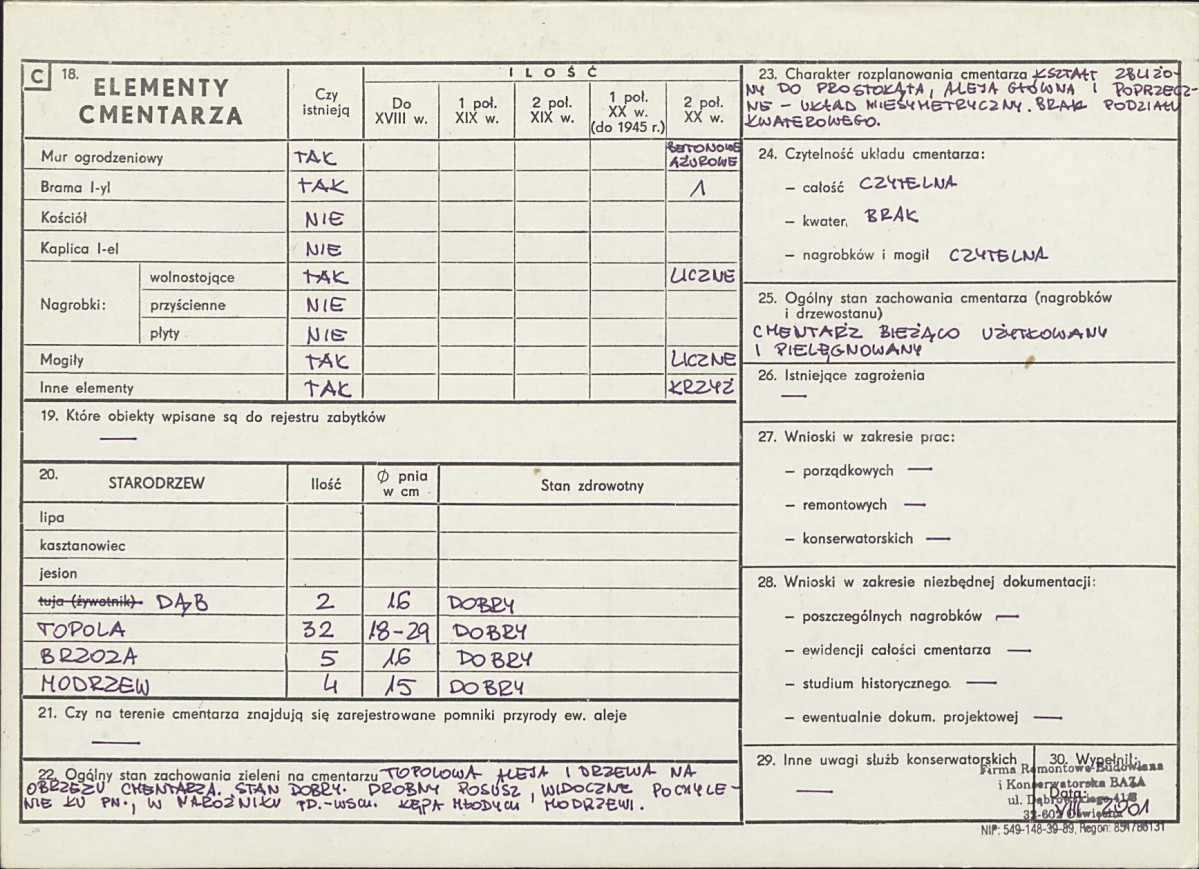 C 18. ELEMENTY CMENTARZA
Czy istnieją
ILOŚĆ
Do XVIII w.
1 poł. XIX w.
2 poł. XIX w.
1 poł. XX w. (do 1945 r.)
2 poł. XX w.
Mur ogrodzeniowy TAK BETONOWE AŻUROWE
Brama I-yl TAK 1
Kościół NIE
Kaplica I-el NIE
Nagrobki:
wolnostojące TAK LICZNE
przyścienne NIE
płyty NIE
Mogiły TAK LICZNE
Inne elementy TAK KRZYŻ
19. Które obiekty wpisane są do rejestru zabytków
—
20. STARODRZEW Ilość Ø pnia w cm Stan zdrowotny
lipa
kasztanowiec
jesion
tuja (żywotnik) DĄB 2 16 DOBRY
TOPOLA 32 18-29 DOBRY
BRZOZA 5 16 DOBRY
MODRZEW 4 15 DOBRY
21. Czy na terenie cmentarza znajdują się zarejestrowane pomniki przyrody ew. aleje
—
22. Ogólny stan zachowania zieleni na cmentarzu TOPOLOWA ALEJA I DRZEWA NA
OBRZEŻU CMENTARZA. STAN DOBRY. DROBNY POSUSZ, WIDOCZNE POCHYLE-
NIE KU PN., W NAROŻNIKU PD.-WSCH. KĘPA MŁODYCH MODRZEWI.
23. Charakter rozplanowania cmentarza KSZTAŁT ZBLIŻO-
NY DO PROSTOKĄTA, ALEJA GŁÓWNA I POPRZECZ-
NE – UKŁAD NIESYMETRYCZNY. BRAK PODZIAŁU
KWATEROWEGO.
24. Czytelność układu cmentarza:
– całość CZYTELNA
– kwater, BRAK
– nagrobków i mogił CZYTELNA
25. Ogólny stan zachowania cmentarza (nagrobków
i drzewostanu)
CMENTARZ BIEŻĄCO UŻYTKOWANY
I PIELĘGNOWANY
26. Istniejące zagrożenia
—
27. Wnioski w zakresie prac:
– porządkowych —
– remontowych —
– konserwatorskich —
28. Wnioski w zakresie niezbędnej dokumentacji:
– poszczególnych nagrobków —
– ewidencji całości cmentarza —
– studium historycznego —
– ewentualnie dokum. projektowej —
29. Inne uwagi służb konserwatorskich
—
30. Wypełnił:
Firma Remontowo-Budowlana
i Konserwatorska BAZA
ul. Dąbrowskiego
Data:
VIII. 2001
32-602 Oświęcim
NIP: 549-148-39-89, Regon: 851786131